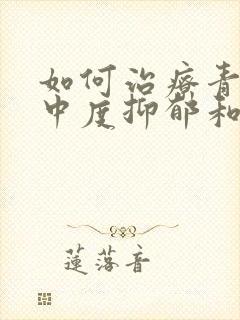 如何治疗青
中度抑郁和
莲落音